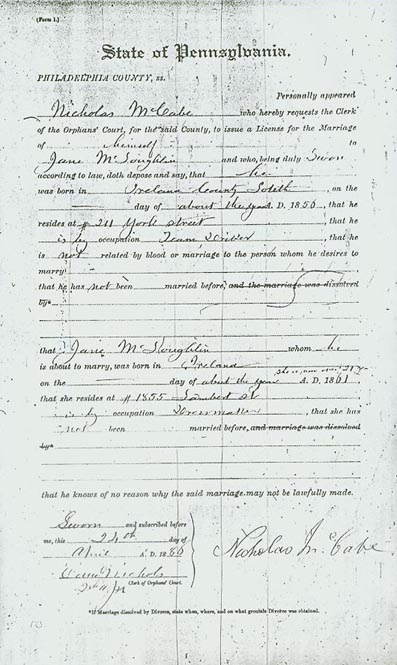 (Form 1.)
State of Pennsylvania.
PHILADELPHIA COUNTY, ss.
Personally appeared
Nicholas McCabe who hereby requests the Clerk
of the Orphans' Court, for the said County, to issue a License for the Marriage
of himself to
Jane McLoughlin and who, being duly Sworn
according to law, doth depose and say, that he
was born in Ireland County on the
day of about the year A. D. 1856, that he
resides at # 211 York street, that he
is by occupation Team Driver, that he
is not related by blood or marriage to the person whom he desires to
marry
that he has not been married before, and the marriage was dissolved
by*
that Jane McLoughlin whom he
is about to marry, was born in Ireland
she is now over 21 y
on the day of about the year A. D. 1861
that she resides at # 1855 Lambert st
is by occupation, that she has
not been married before, and marriage was dissolved
by*
that he knows of no reason why the said marriage may not be lawfully made.
Sworn and subscribed before
me, this 24th day of
April A. D. 1886
Nichols
Clerk of Orphans' Court.
Nicholas McCabe
*If Marriage dissolved by Divorce, state when, where, and on what grounds Divorce was obtained.